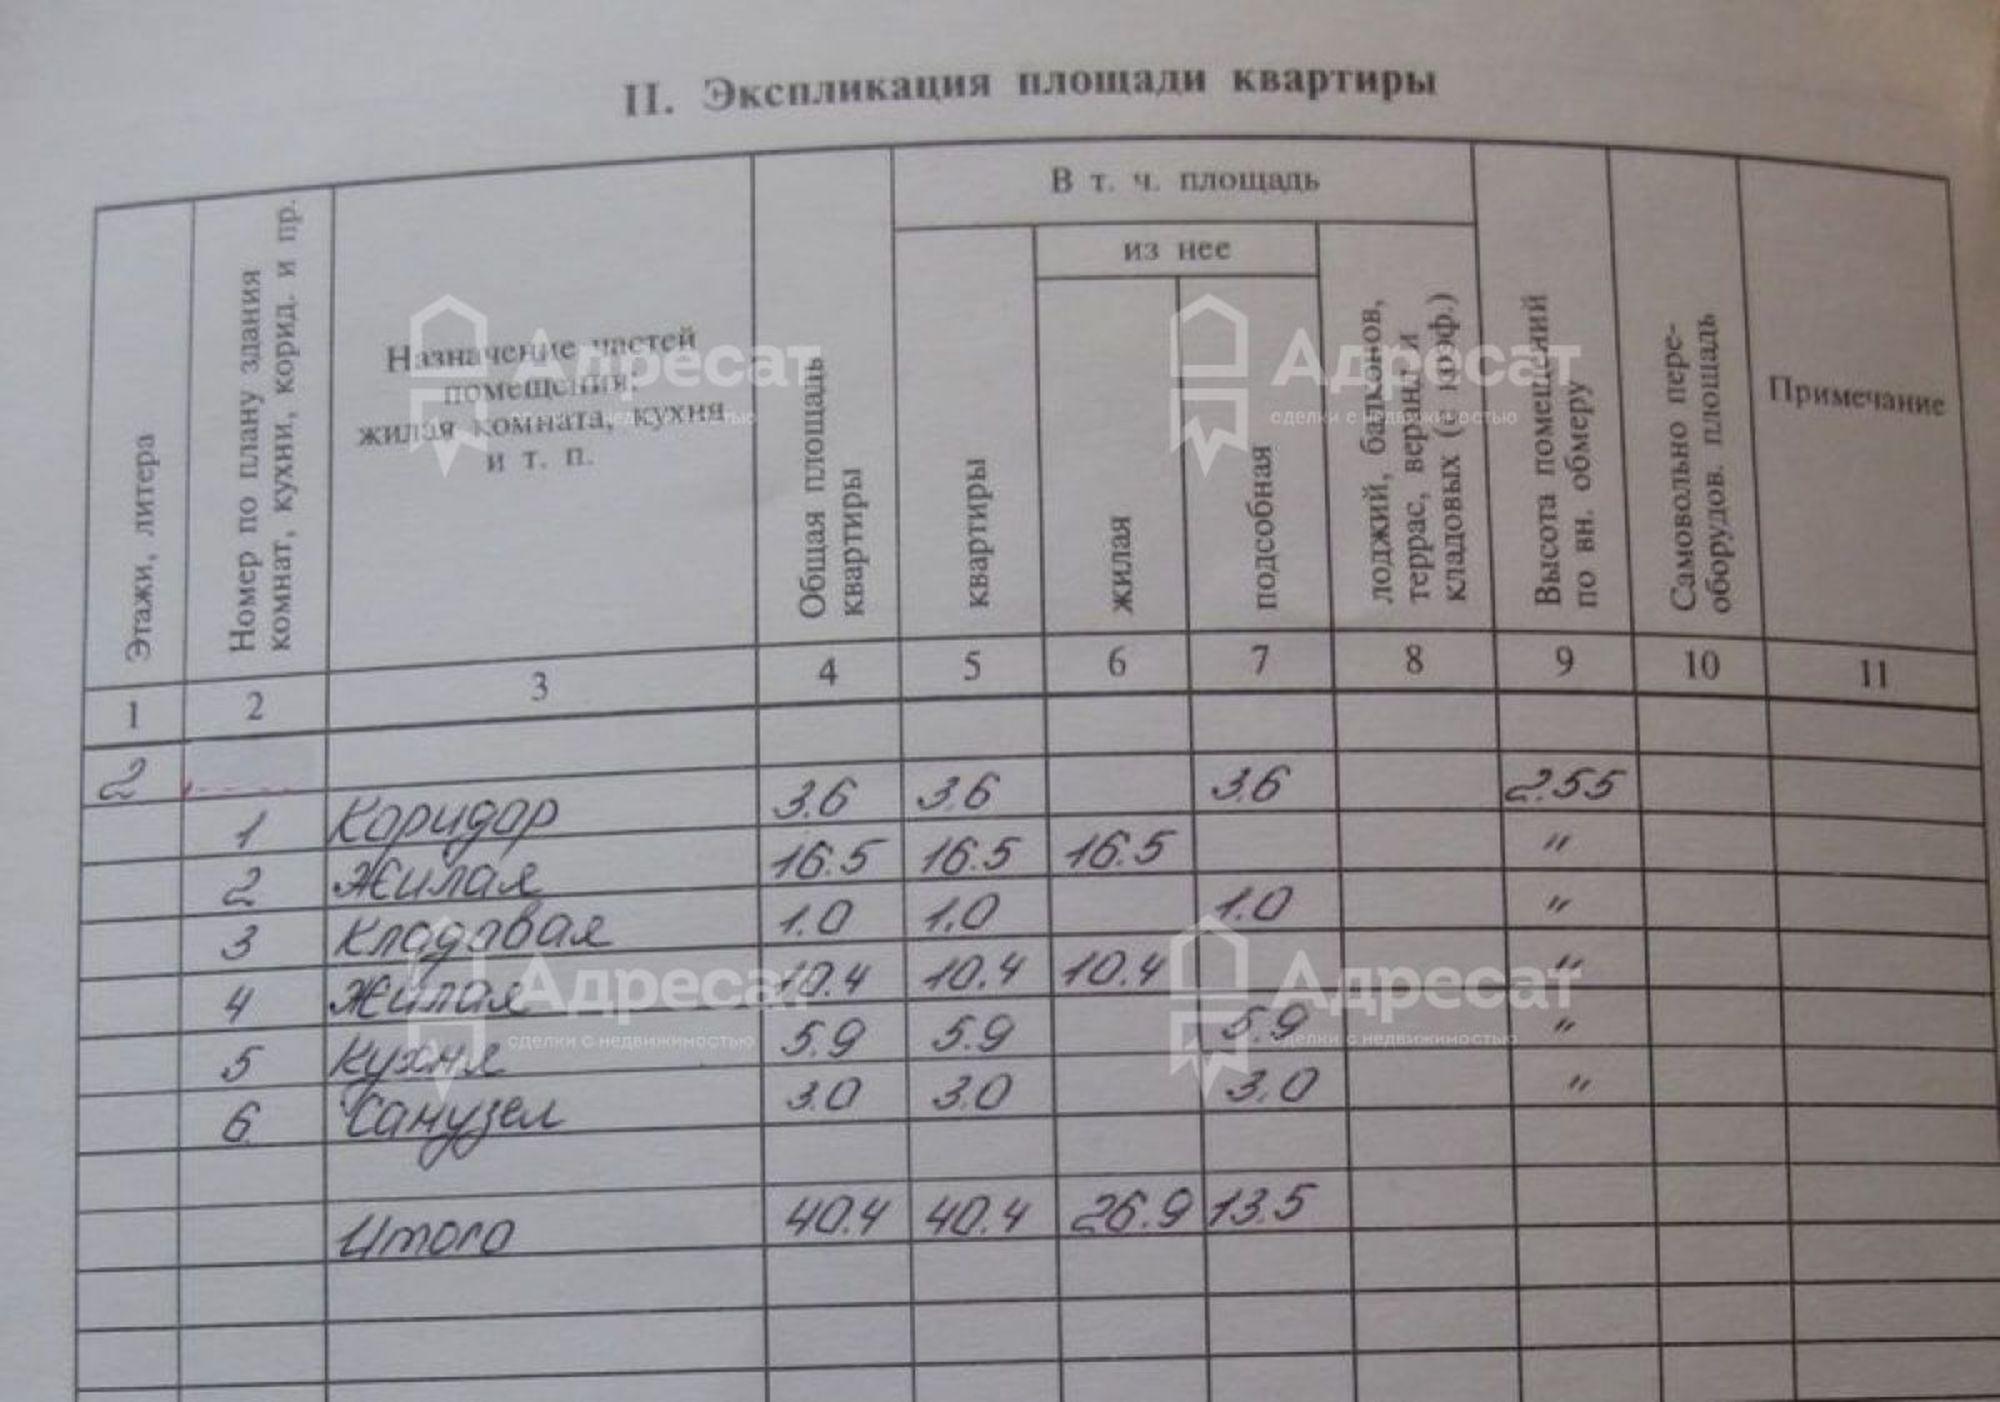 II. Экспликация площади квартиры
Этажи, литера
Номер по плану здания
комнат, кухни, корид. и пр.
Назначение частей
помещения:
жилая комната, кухня
и т. п.
Общая площадь
квартиры
В т. ч. площадь
квартиры
из нее
жилая
подсобная
лоджий, балконов,
террас, веранд и
кладовых (с коэф.)
Высота помещений
по вн. обмеру
Самовольно пере-
оборудов. площадь
Примечание
1 2 3 4 5 6 7 8 9 10 11
2
1 Коридор 3.6 3.6 3.6 2.55
2 Жилая 16.5 16.5 16.5 "
3 Кладовая 1.0 1.0 1.0 "
4 Жилая 10.4 10.4 10.4 "
5 Кухня 5.9 5.9 5.9 "
6 Санузел 3.0 3.0 3.0 "
Итого 40.4 40.4 26.9 13.5
Адресат
сделки с недвижимостью
Адресат
сделки с недвижимостью
Адресат
сделки с недвижимостью
Адресат
сделки с недвижимостью